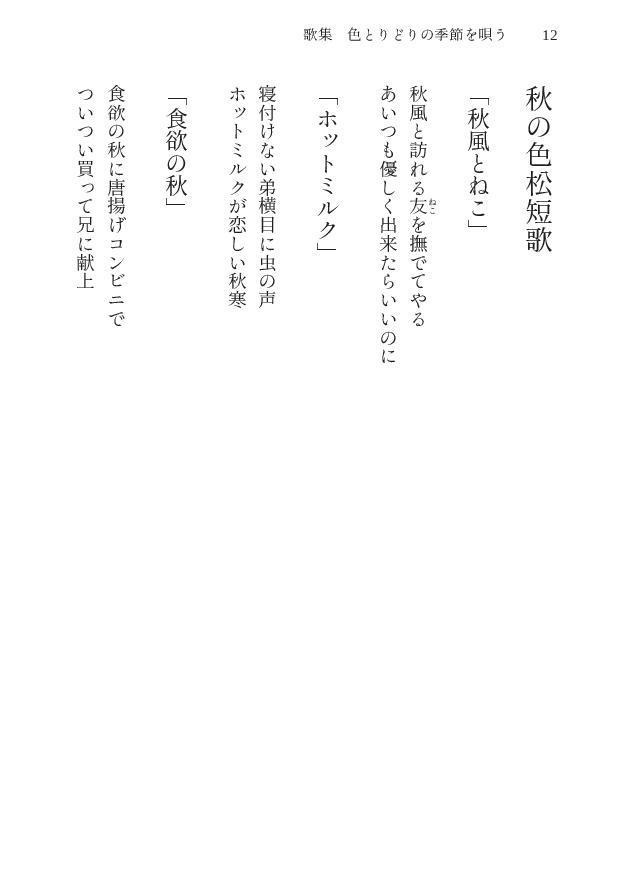 歌集　色とりどりの季節を唄う　12
秋の色松短歌
「秋風とねこ」
秋風と訪れる友ねこを撫でてやる
あいつも優しく出来たらいいのに
「ホットミルク」
寝付けない弟横目に虫の声
ホットミルクが恋しい秋寒
「食欲の秋」
食欲の秋に唐揚げコンビニで
ついつい買って兄に献上